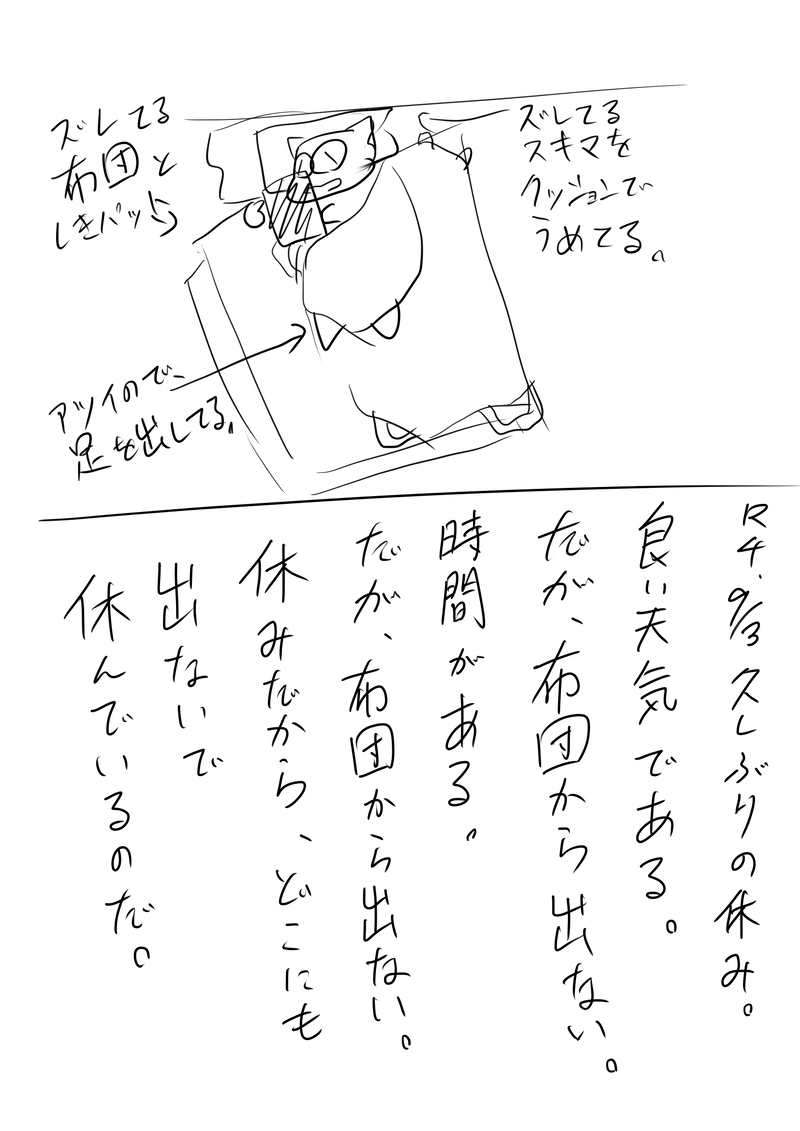 ズレてる
布団と
しきパッド
ズレてる
スキマを
クッションで
うめてる。
アツイので、
足を出してる。
R4.9/3 久しぶりの休み。
良い天気である。
だが、布団から出ない。
時間がある。
だが、布団から出ない。
休みだから、どこにも
出ないで
休んでいるのだ。